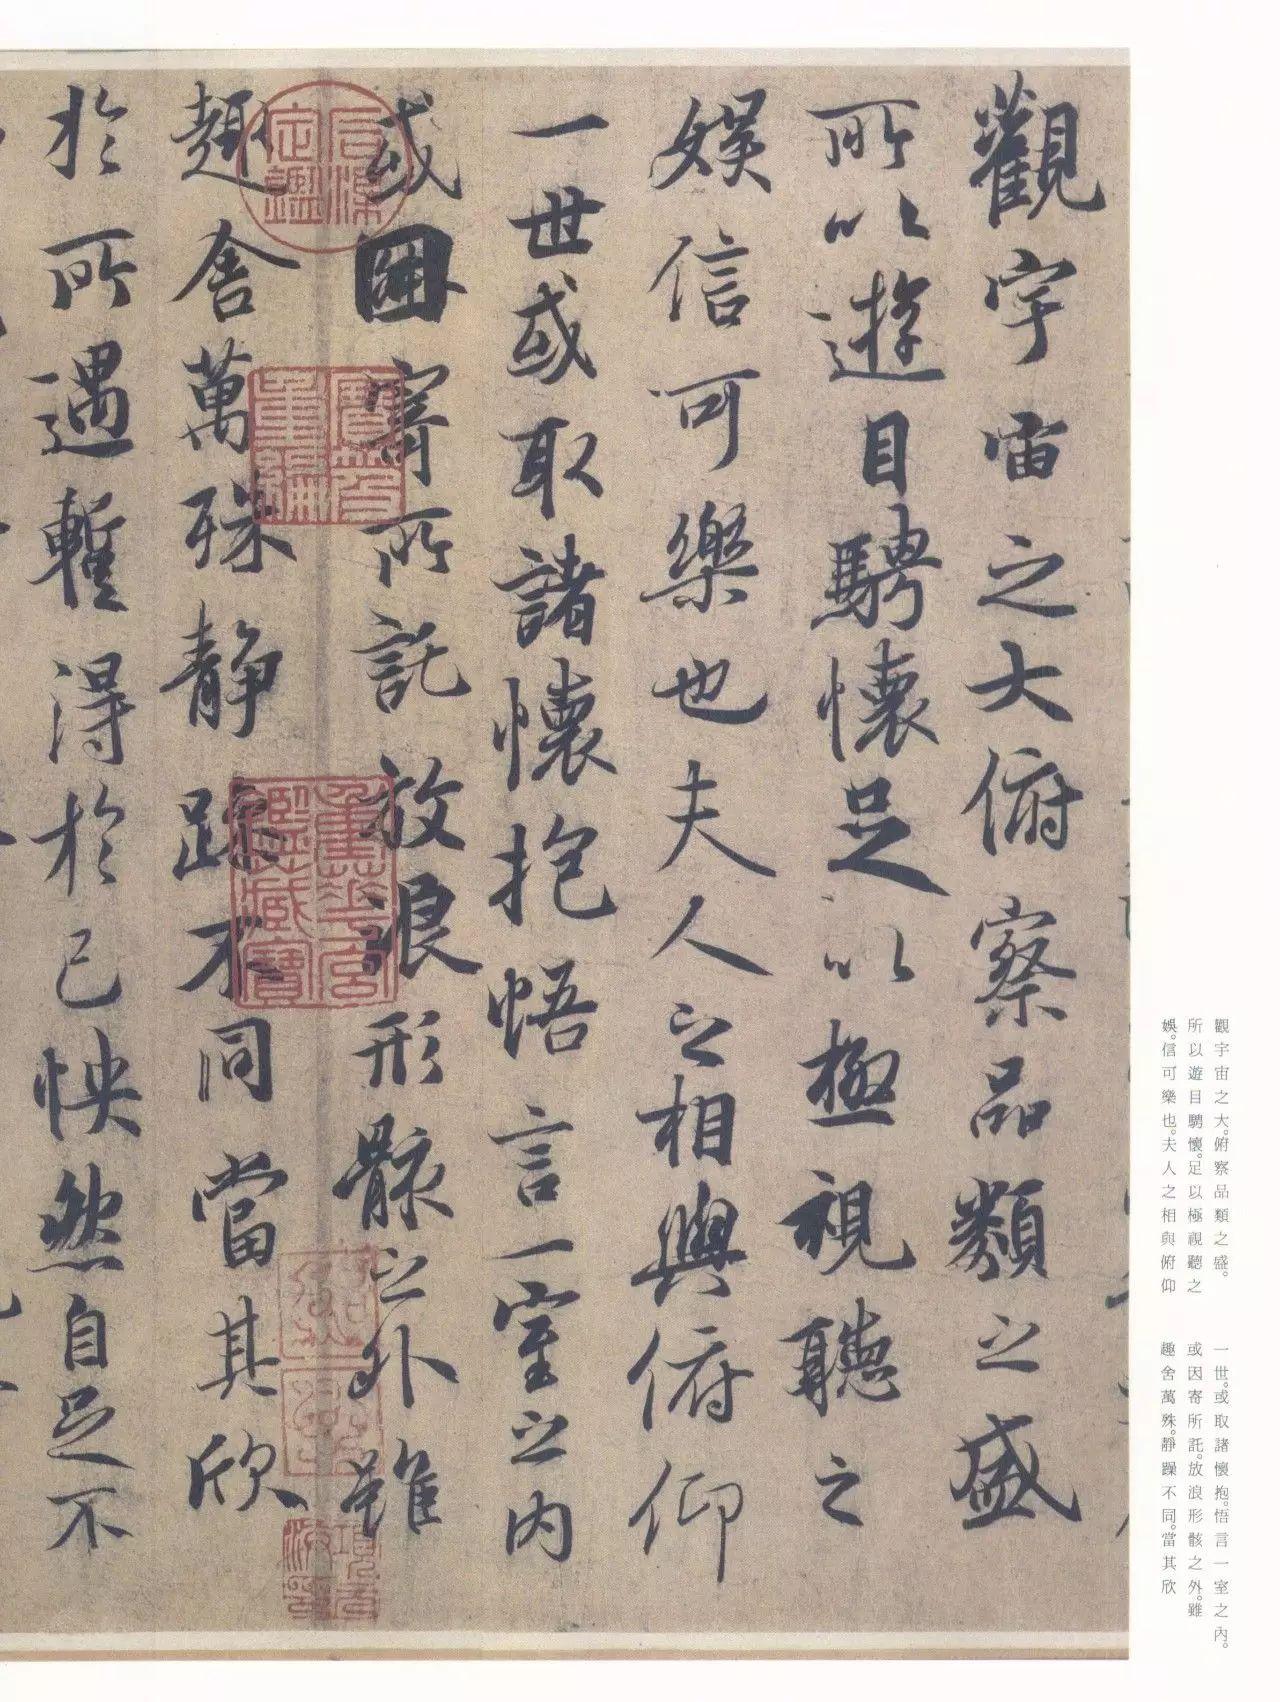 觀宇宙之大俯察品類之盛
所以遊目騁懷足以極視聽之
娛信可樂也夫人之相與俯仰
一世或取諸懷抱悟言一室之內
或因寄所託放浪形骸之外雖
趣舍萬殊靜躁不同當其欣
於所遇暫得於己怏然自足不
觀宇宙之大。俯察品類之盛。
所以遊目騁懷。足以極視聽之
娛。信可樂也。夫人之相與俯仰
一世。或取諸懷抱。悟言一室之內。
或因寄所託。放浪形骸之外。雖
趣舍萬殊。靜躁不同。當其欣